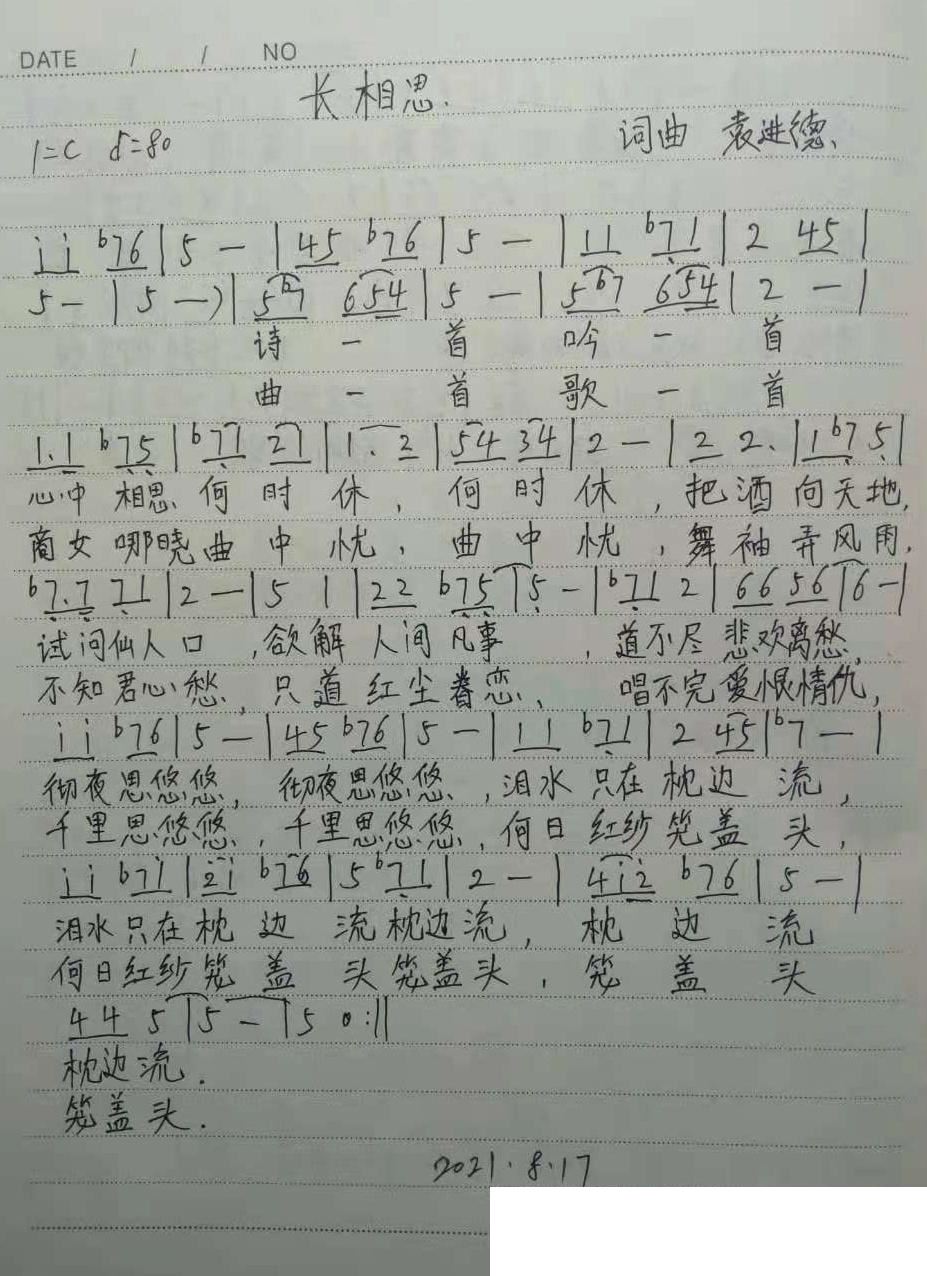 DATE / / NO
长相思.
1=C ♩=80 词曲 袁进德、
i i ♭76 | 5 — | 45 ♭76 | 5 — | 11 ♭71 | 2 45 |
5 — | 5 —) | 5♭7 654 | 5 — | 5♭7 654 | 2 — |
诗 一 首 吟 一 首
曲 一 首 歌 一 首
1.1 ♭75 | ♭77 21 | 1. 2 | 54 34 | 2 — | 2 2. | 1♭7 5 |
心中 相思 何 时 休 , 何 时 休 , 把 酒 向天地,
商女 哪晓曲 中 忧 , 曲 中 忧 , 舞 袖 弄风雨.
♭7.7 71 | 2 — | 5 1 | 22 ♭75 | 5 — | ♭71 2 | 66 56 | 6 — |
试问仙人口 , 欲解 人间 凡事 , 道不尽 悲欢离愁,
不知君心愁, 只道 红尘眷恋、 唱不完爱恨情仇,
i i ♭76 | 5 — | 45 ♭76 | 5 — | 11 ♭71 | 2 45 | ♭7 — |
彻夜思悠悠, 彻夜思悠悠 , 泪水 只在 枕边 流 ,
千里思悠悠 , 千里思悠悠 , 何日 红纱 笼盖 头 ,
i i ♭7i | 2i ♭76 | 5 ♭71 | 2 — | 4i2 ♭76 | 5 — |
泪水只在枕 边 流 枕边流 , 枕 边 流
何日红纱笼 盖 头 笼盖头 , 笼 盖 头
44 5 | 5 — | 5 0 :||
枕边流.
笼盖头.
2021.8.17